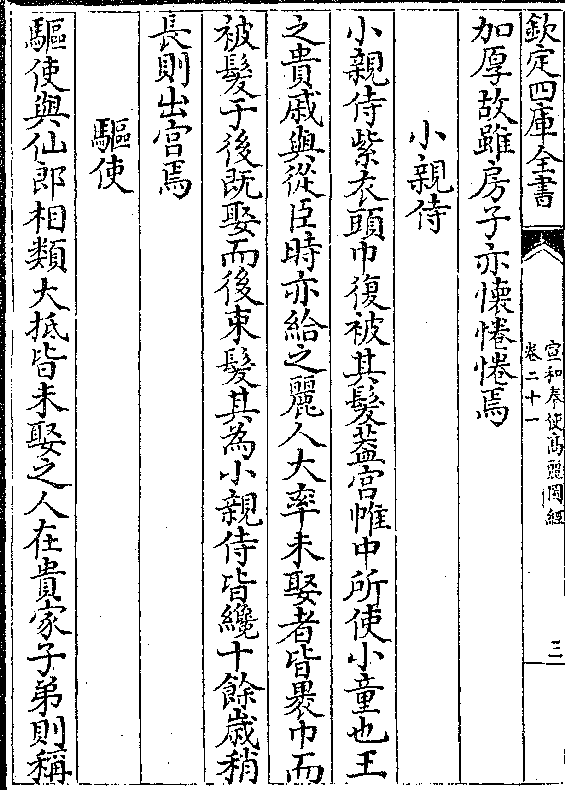 欽定四庫全書
宣和奉使高麗圖經
卷二十一
三
加厚故雖房子亦懐惓惓焉
小親侍
小親侍紫衣頭巾復被其髮葢宫帷中所使小童也王
之貴戚與從臣時亦給之麗人大率未娶者皆褁巾而
被髮于後既娶而後束髮其為小親侍皆纔十餘歳稍
長則出宫焉
驅使
驅使與仙郎相類大抵皆未娶之人在貴家子弟則稱